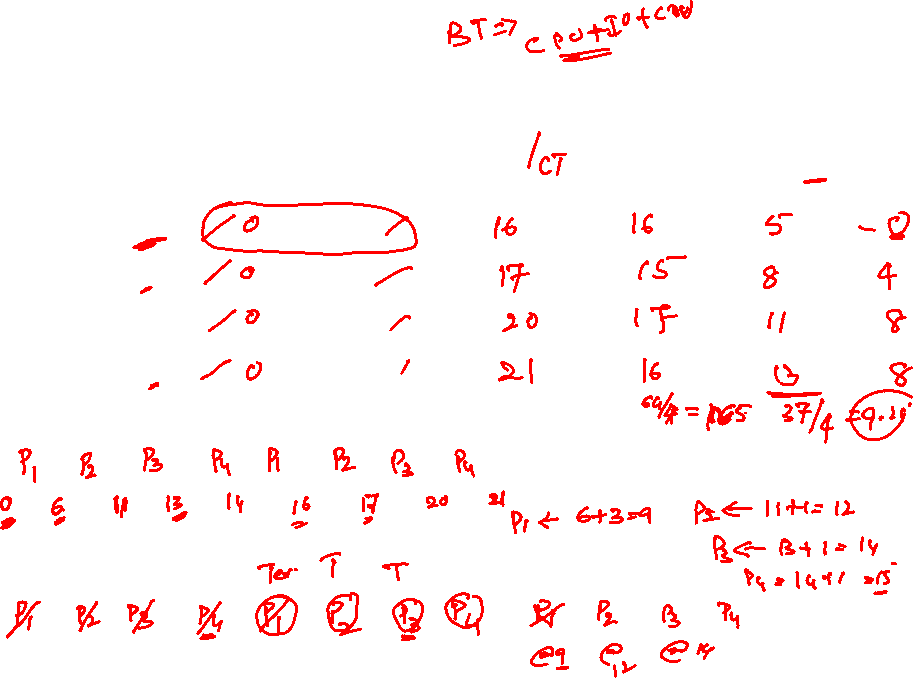 BT ⇒ CPU + IO +
/ CT
0 16 16 5 - 0
0 17 15 8 4
0 20 17 11 8
0 21 16 13 8
64/4 = 37/4 = 9.25
P1 P2 P3 P4 P1 P2 P3 P4
0 6 11 13 14 16 17 20 21
P1 ← 6+3=9 P2 ← 11+1=12
P3 ← 13+1=14
P4 = 14+1 =15
Ter T T
P1 P2 P3 P4 P1 P2 P3 P4 P1 P2 P3 P4
@9 @12 @14